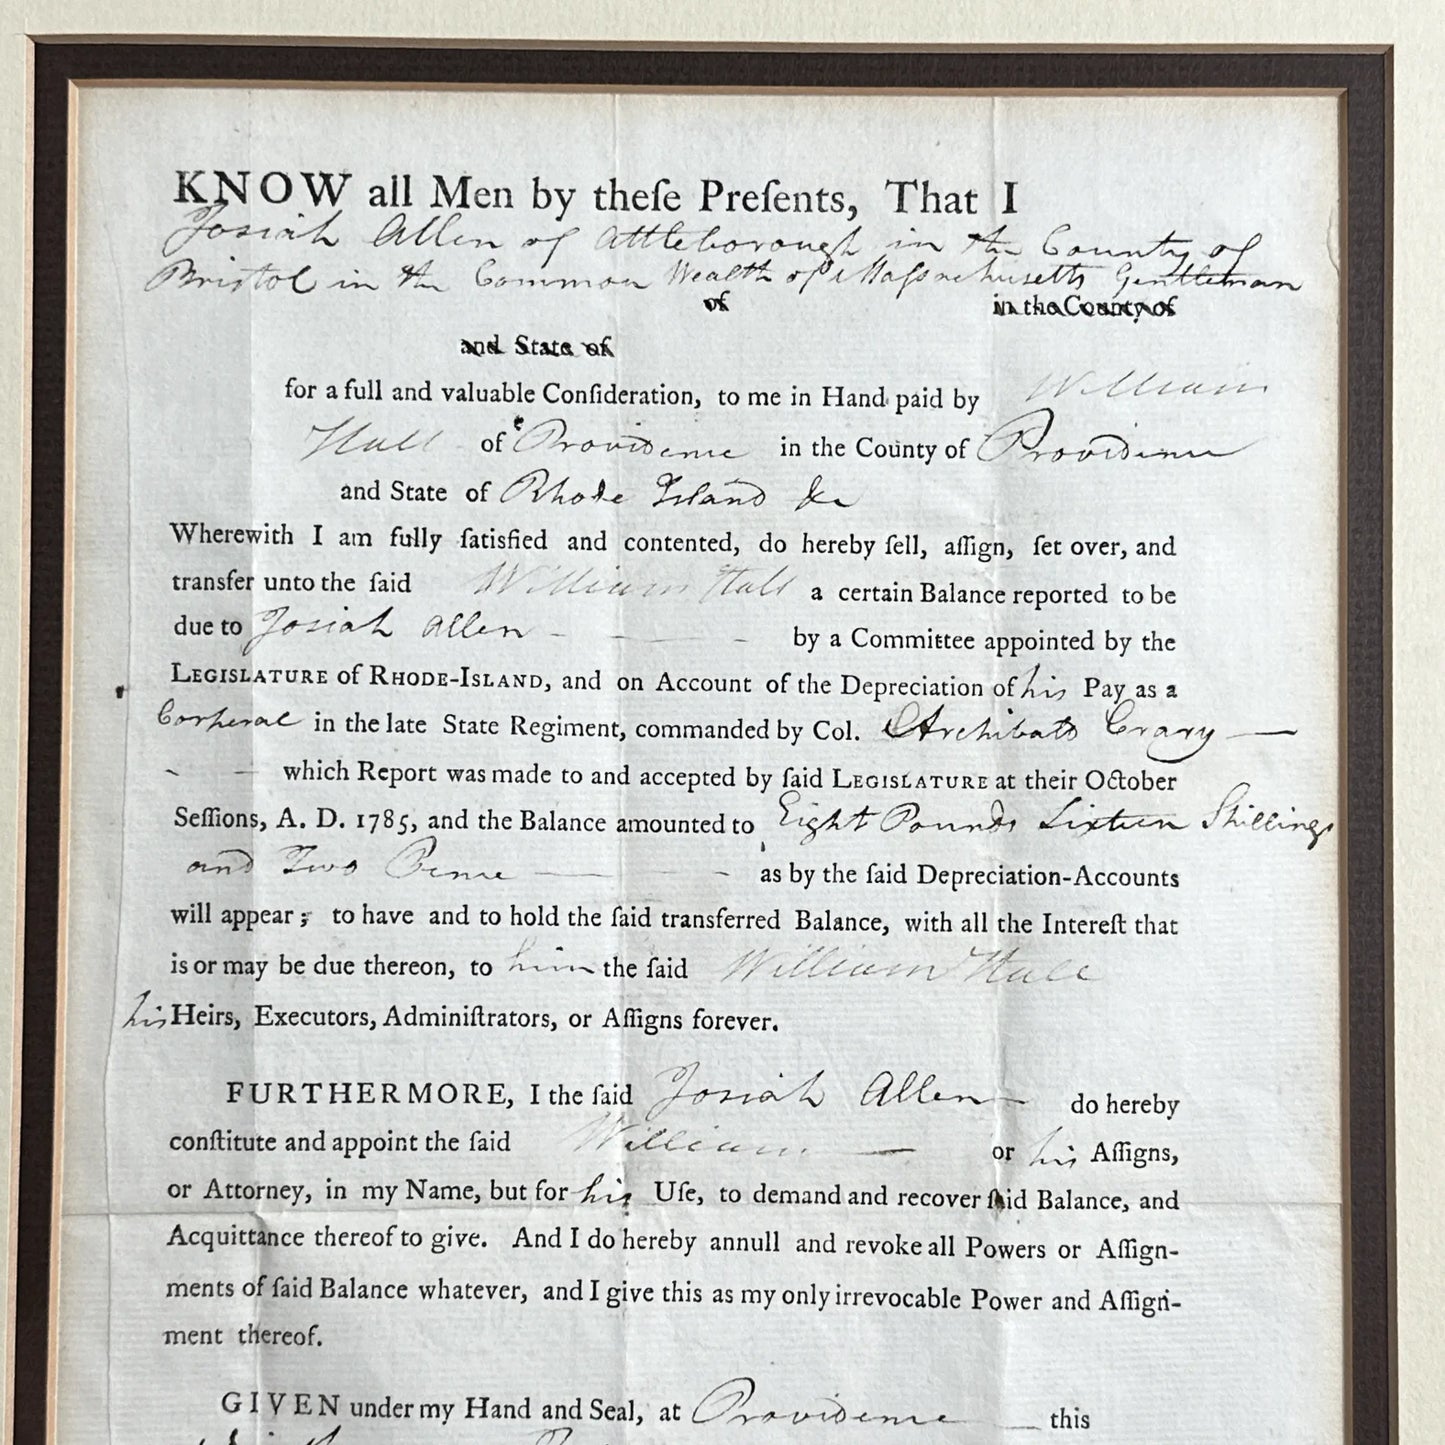 KNOW all Men by theſe Preſents, That I
Josiah Allen of Attleborough in the County of
Bristol in the Common Wealth of Massachusetts Gentleman
of in the County of
and State of
for a full and valuable Conſideration, to me in Hand paid by William
Hall of Providence in the County of Providence
and State of Rhode Island &c
Wherewith I am fully ſatisfied and contented, do hereby ſell, aſſign, ſet over, and
transfer unto the ſaid William Hall a certain Balance reported to be
due to Josiah Allen - - - by a Committee appointed by the
LEGISLATURE of RHODE-ISLAND, and on Account of the Depreciation of his Pay as a
Corperal in the late State Regiment, commanded by Col. Archibald Crary —
- - which Report was made to and accepted by ſaid LEGISLATURE at their October
Seſſions, A. D. 1785, and the Balance amounted to Eight Pounds Sixteen Shillings
and Two Pence — — - - as by the ſaid Depreciation-Accounts
will appear; to have and to hold the ſaid transferred Balance, with all the Intereſt that
is or may be due thereon, to him the ſaid William Hall
his Heirs, Executors, Adminiſtrators, or Aſſigns forever.
FURTHERMORE, I the ſaid Josiah Allen — do hereby
conſtitute and appoint the ſaid William — or his Aſſigns,
or Attorney, in my Name, but for his Uſe, to demand and recover ſaid Balance, and
Acquittance thereof to give. And I do hereby annull and revoke all Powers or Aſſign-
ments of ſaid Balance whatever, and I give this as my only irrevocable Power and Aſſign-
ment thereof.
GIVEN under my Hand and Seal, at Providence — this